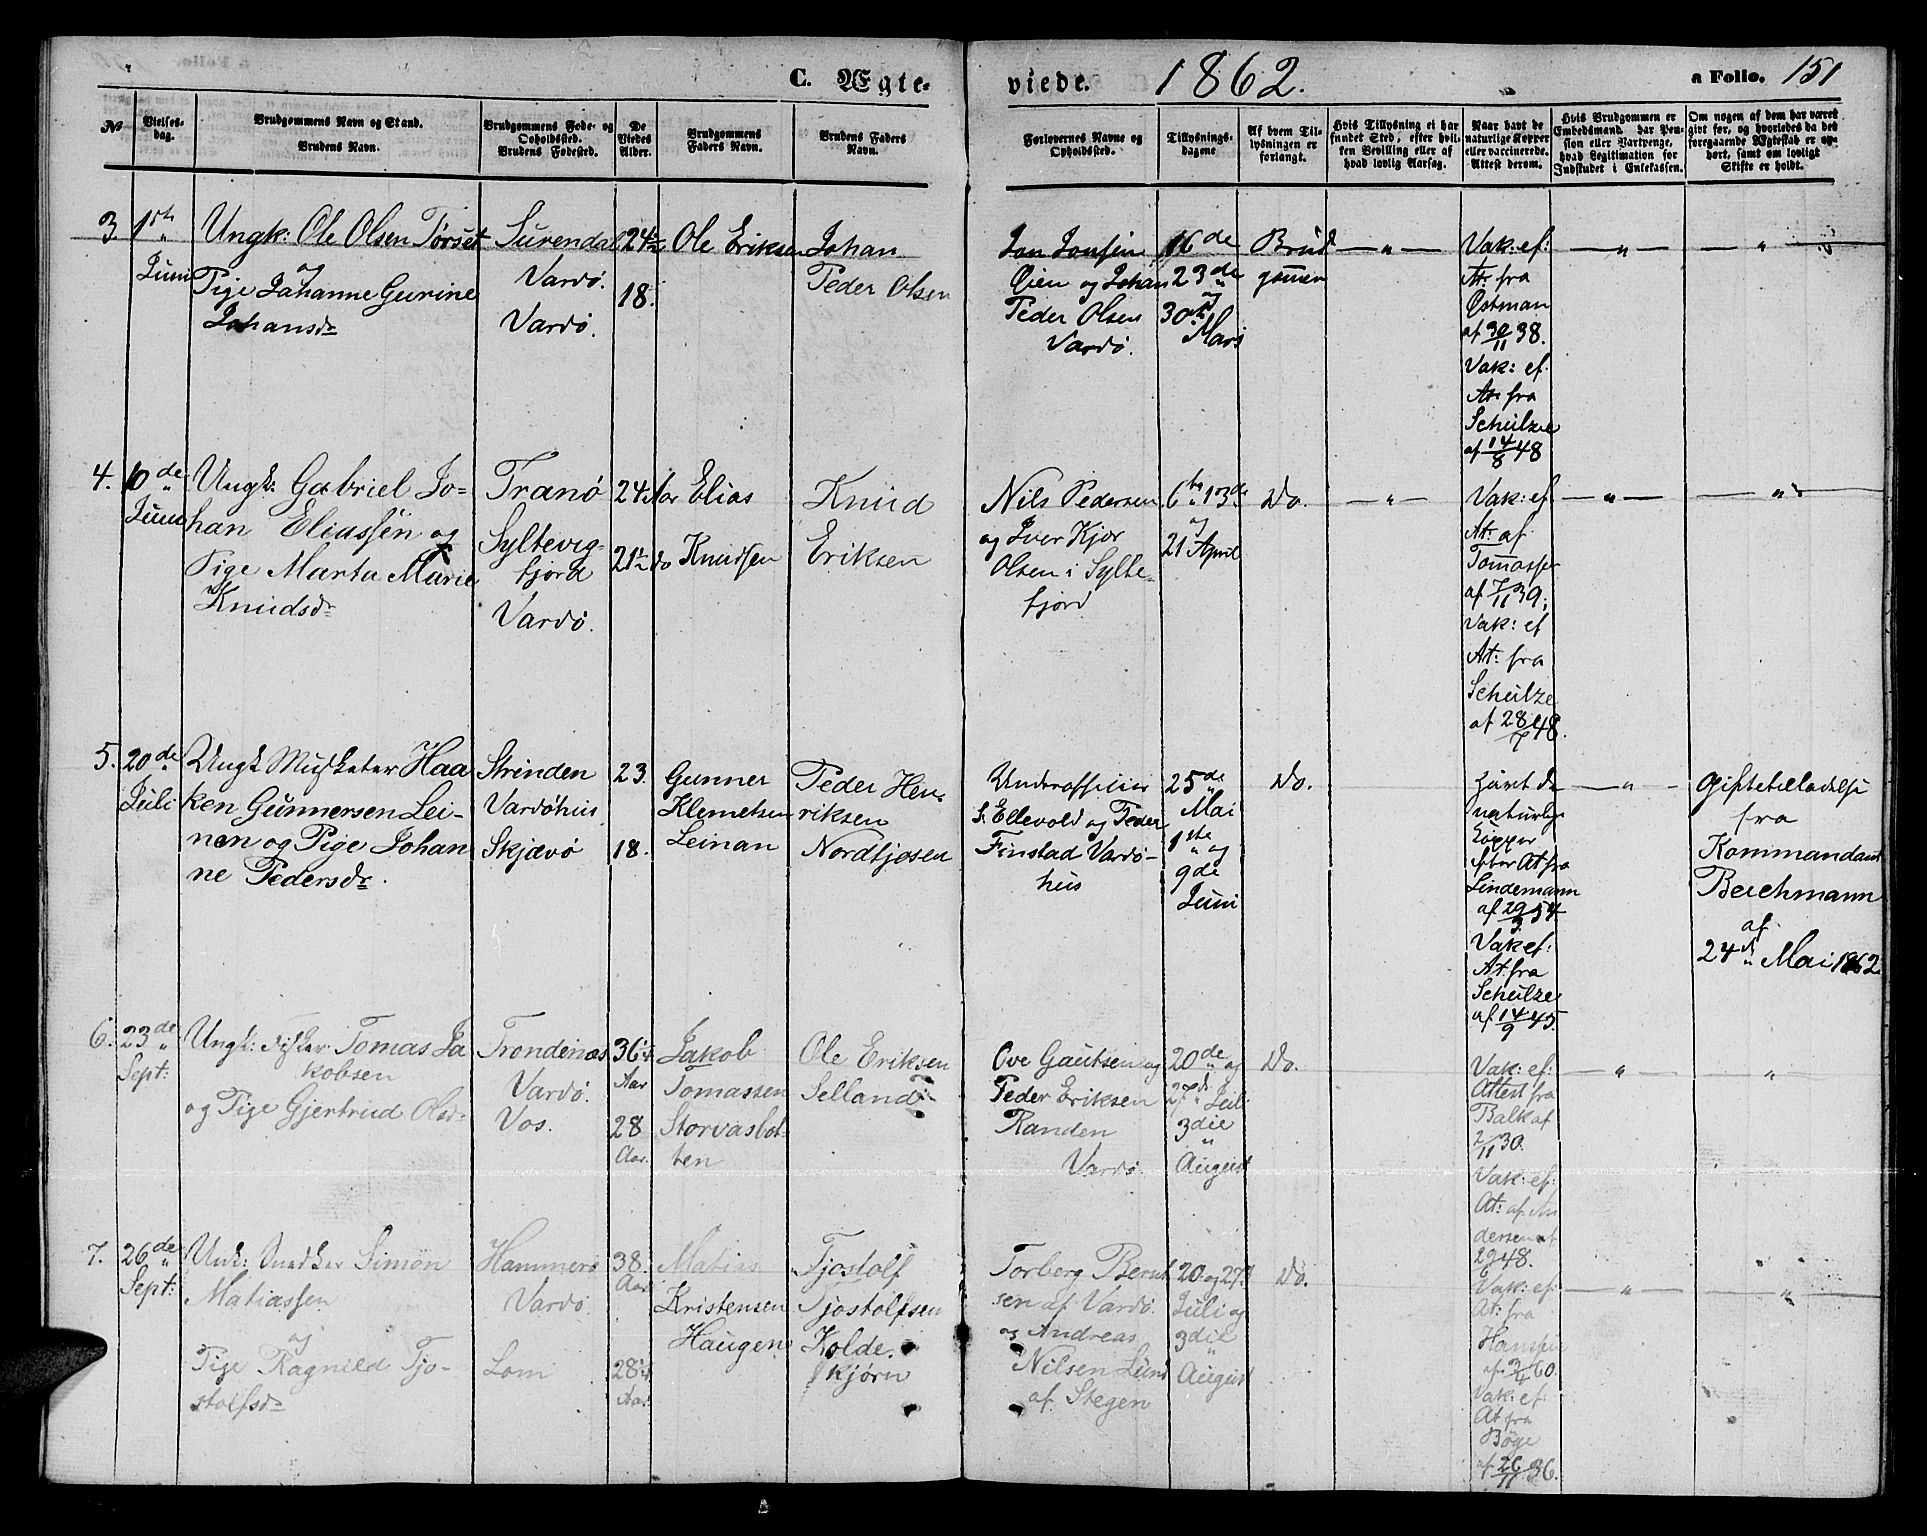 C. Ægte-
viede. 1862.
a Folio. 151
No
Vielses-
dag.
Brudgommens Navn og Stand.
Brudens Navn.
Brudgommens Føde- og
Opholdssted.
Brudens Fødested.
De
Viedes
Alder.
Brudgommens
Faders Navn.
Brudens Faders
Navn.
Forlovernes Navne og
Opholdssted.
Tillysnings-
dagene
Af hvem Til-
lysningen er
forlangt.
Hvis Tillysning ei har
fundet Sted, efter hvil-
ken Bevilling eller af
hvad lovlig Aarsag.
Naar havt de
naturlige Kopper
eller vaccinerede.
Attest derom.
Hvis Brudgommen er
Embedsmand, har Pen-
sion eller Vartpenge,
hvad Legitimation for
Indskudet i Enkekassen.
Om nogen af dem har været
gift før, og hvorledes da det
foregaaende Ægteskab er op-
hørt, samt om lovligt
Skifte er holdt.
3. 1ste
Juni
Ungk: Ole Olsen Tørset
og
Pige Johanne Gurine
Johansdr
Surendal
Vardø.
Vardø.
24½
18.
Ole Eriksen
Johan
Peder Olsen
Jon Jonsen
Oien og Johan
Peder Olsen
Vardø.
16de
23de
og
30te
Mars
Brud
gomen
— " —
Vak: ef:
At: fra
Østman
af 30/11 38.
Vak: ef.
At: fra
Schulze
af 14/8 48
— " —
"
4. 10de
Juni
Ungk: Gabriel Jo=
han Eliassen og
Pige Marta Marie
Knudsdr
Tranø
Syltevig-
fjord
Vardø.
24 Aar
21½ do
Elias
Knudsen
Knud
Eriksen
Nils Pedersen
og Iver Kjør
Olsen i Sylte-
fjord
6te 13de
og
21 April
Do.
— " —
Vak: ef
At: af
Tomassen
af 7/11 39;
Vak: ef
At: fra
Schulze
af 28/7 48.
— " —
"
5. 20de
Juli
Ungk Musketer Haa
ken Gunnersen Lei-
nan og Pige Johan
ne Pedersdr.
Strinden
Vardøhus
Skjævø
23.
18.
Gunner
Klemetsen
Leinan
Peder Hen-
riksen
Nordfjosen
Underofficier
S. Ellevold og Peder
Finstad Vardø-
hus
25de
Mai
1ste
og
9de
Juni
Do.
havt de
naturlig
Kopper
efter At fra
Lindemann
af 29/3 54
Vak ef:
At fra
Schulze
af 14/9 45.
— " —
Giftetilladelse
fra
Kommandant
Beichmann
af
24de Mai 1862
6. 23de
Sept:
Ungk: Fisker Tomas Ja
kobsen
og Pige Gjertrud Olsdr
Trondenæs
Vardø.
Vos.
36¼
Aar
28
Aar.
Jakob
Tomassen
Storvasbot-
ten
Ole Eriksen
Selland
Ove Gautsen og
Peder Eriksen
Randen
Vardø.
20de og
27de Juli
3die
August
Do.
Vak: ef:
Attest fra
Balk af
2/11 30.
Vak: ef:
At: af An
dersen af
29/6 48.
— " —
"
7. 26de
Sept:
Unk: Snedker Simon
Matiassen
og
Pige Ragnild Tjo-
stolfsdr
Hammerø
Vardø.
Lom
38.
Aar
28¼
Aar
Matias
Kristensen
Haugen
Tjostolf
Tjostolfsen
Kolde.
skjørn
Torberg Bernt
sen af Vardø.
og Andreas
Nilsen Lund
af Stegen
20. og 27de
Juli og
3die
August
Do.
Vak: ef:
At: fra
Hanssen
af 3/4 60.
Vak: ef:
At fra
Böge
af 26/11 36.
— " —
"